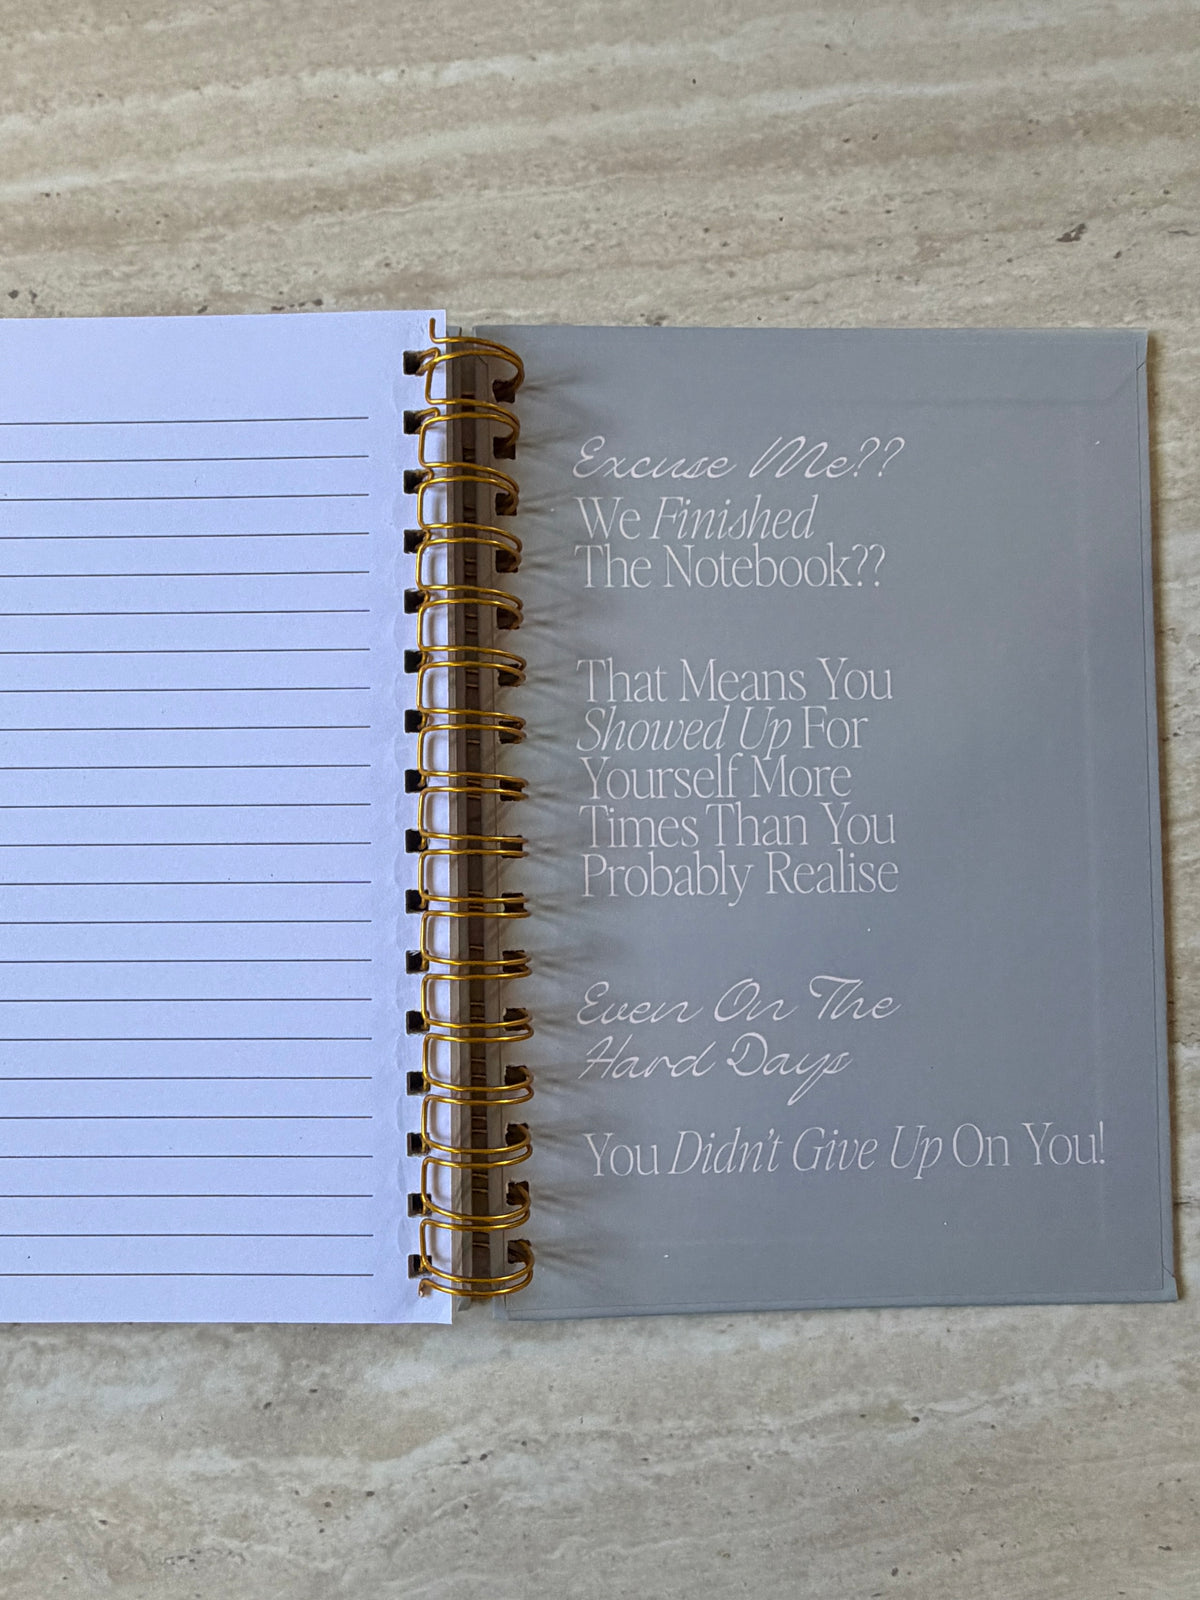 Excuse Me??
We Finished
The Notebook??
That Means You
Showed Up For
Yourself More
Times Than You
Probably Realise
Even On The
Hard Days
You Didn't Give Up On You!